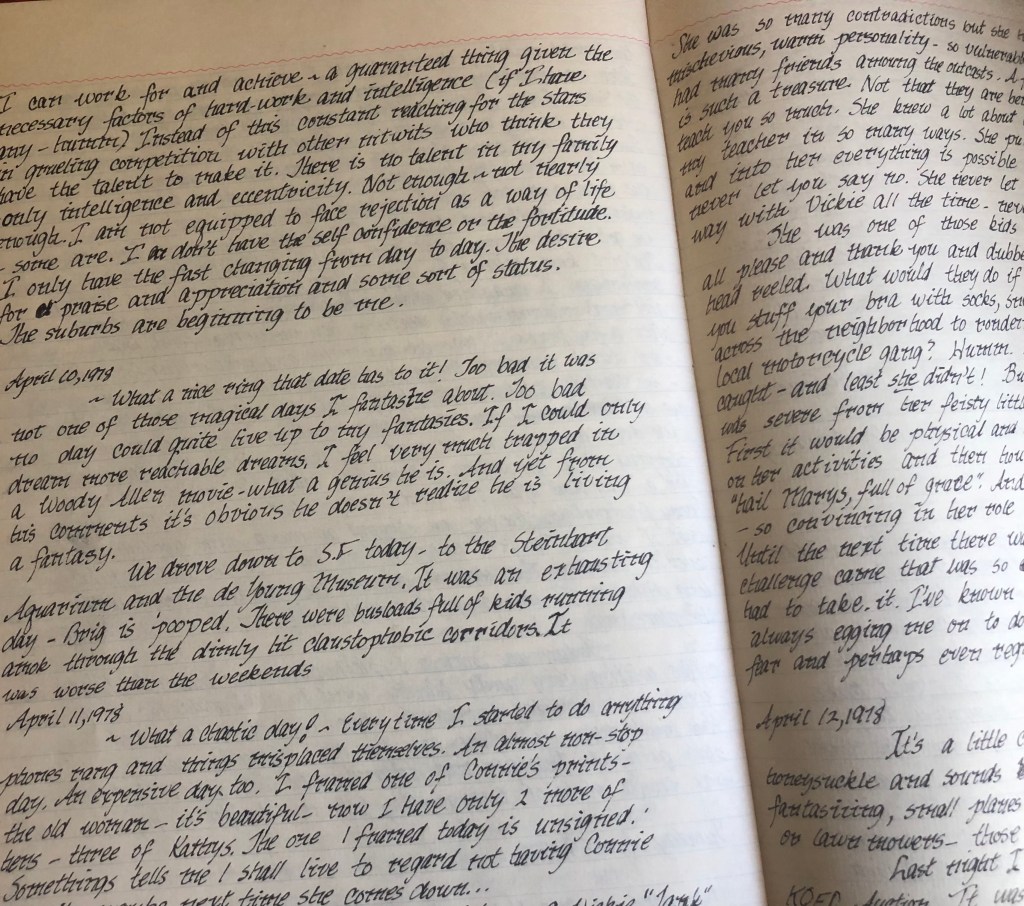 I can work for and achieve ~ a guaranteed thing given the
necessary factors of hard-work and intelligence (if I have
any - humm) Instead of this constant reaching for the stars
in grueling competition with other nitwits who think they
have the talent to make it. There is no talent in my family
only intelligence and eccentricity. Not enough ~ not nearly
enough. I am not equipped to face rejection as a way of life
- some are. I don't have the self confidence or the fortitude.
I only have the fast changing from day to day. The desire
for praise and appreciation and some sort of status.
The suburbs are beginning to be me.
April 10, 1978
~ What a nice ring that date has to it! Too bad it was
not one of those magical days I fantasize about. Too bad
no day could quite live up to my fantasies. If I could only
dream more reachable dreams. I feel very much trapped in
a Woody Allen movie - what a genius he is. And yet from
his comments it's obvious he doesn't realize he is living
a fantasy.
We drove down to S.F today - to the Steinhart
Aquarium and the de Young Museum. It was an exhausting
day - Brig is pooped. There were busloads full of kids running
amok through the dimly lit claustophobic corridors. It
was worse than the weekends
April 11, 1978
~ What a chaotic day! ~ Everytime I started to do anything
phones rang and things misplaced themselves. An almost non-stop
day. An expensive day too. I framed one of Connie's prints -
the old woman - it's beautiful - now I have only 2 more of
hers - three of Kathys. The one I framed today is unsigned.
Somethings tells me I shall live to regard not having Connie
next time she comes down...
"Jank"
She was so many contradictions but she
mischevious, warm personality - so vulnerable
had many friends amoung the outcasts. A
is such a treasure. Not that they are
teach you so much. She knew a lot about
my teacher in so many ways. She
and into her everything is possible
never let you say no. She never let
way with Vickie all the time -
She was one of those kids
all please and thank you and
head reeled. What would they do if
you stuff your bra with socks,
across the neighborhood to
local motorcycle gang? Humm.
caught - and least she didn't!
was severe from her feisty
First it would be physical and
on her activities and then
"hail Marys, full of grace". And
- so convincing in her role
Until the next time there
challenge came that was so
had to take it. I've known
always egging me on to do
fear and perhaps even
April 12, 1978
It's a little
honeysuckle and sounds
fantasizing, small planes
or lawn mowers - those
Last night I
KQED Auction. It was